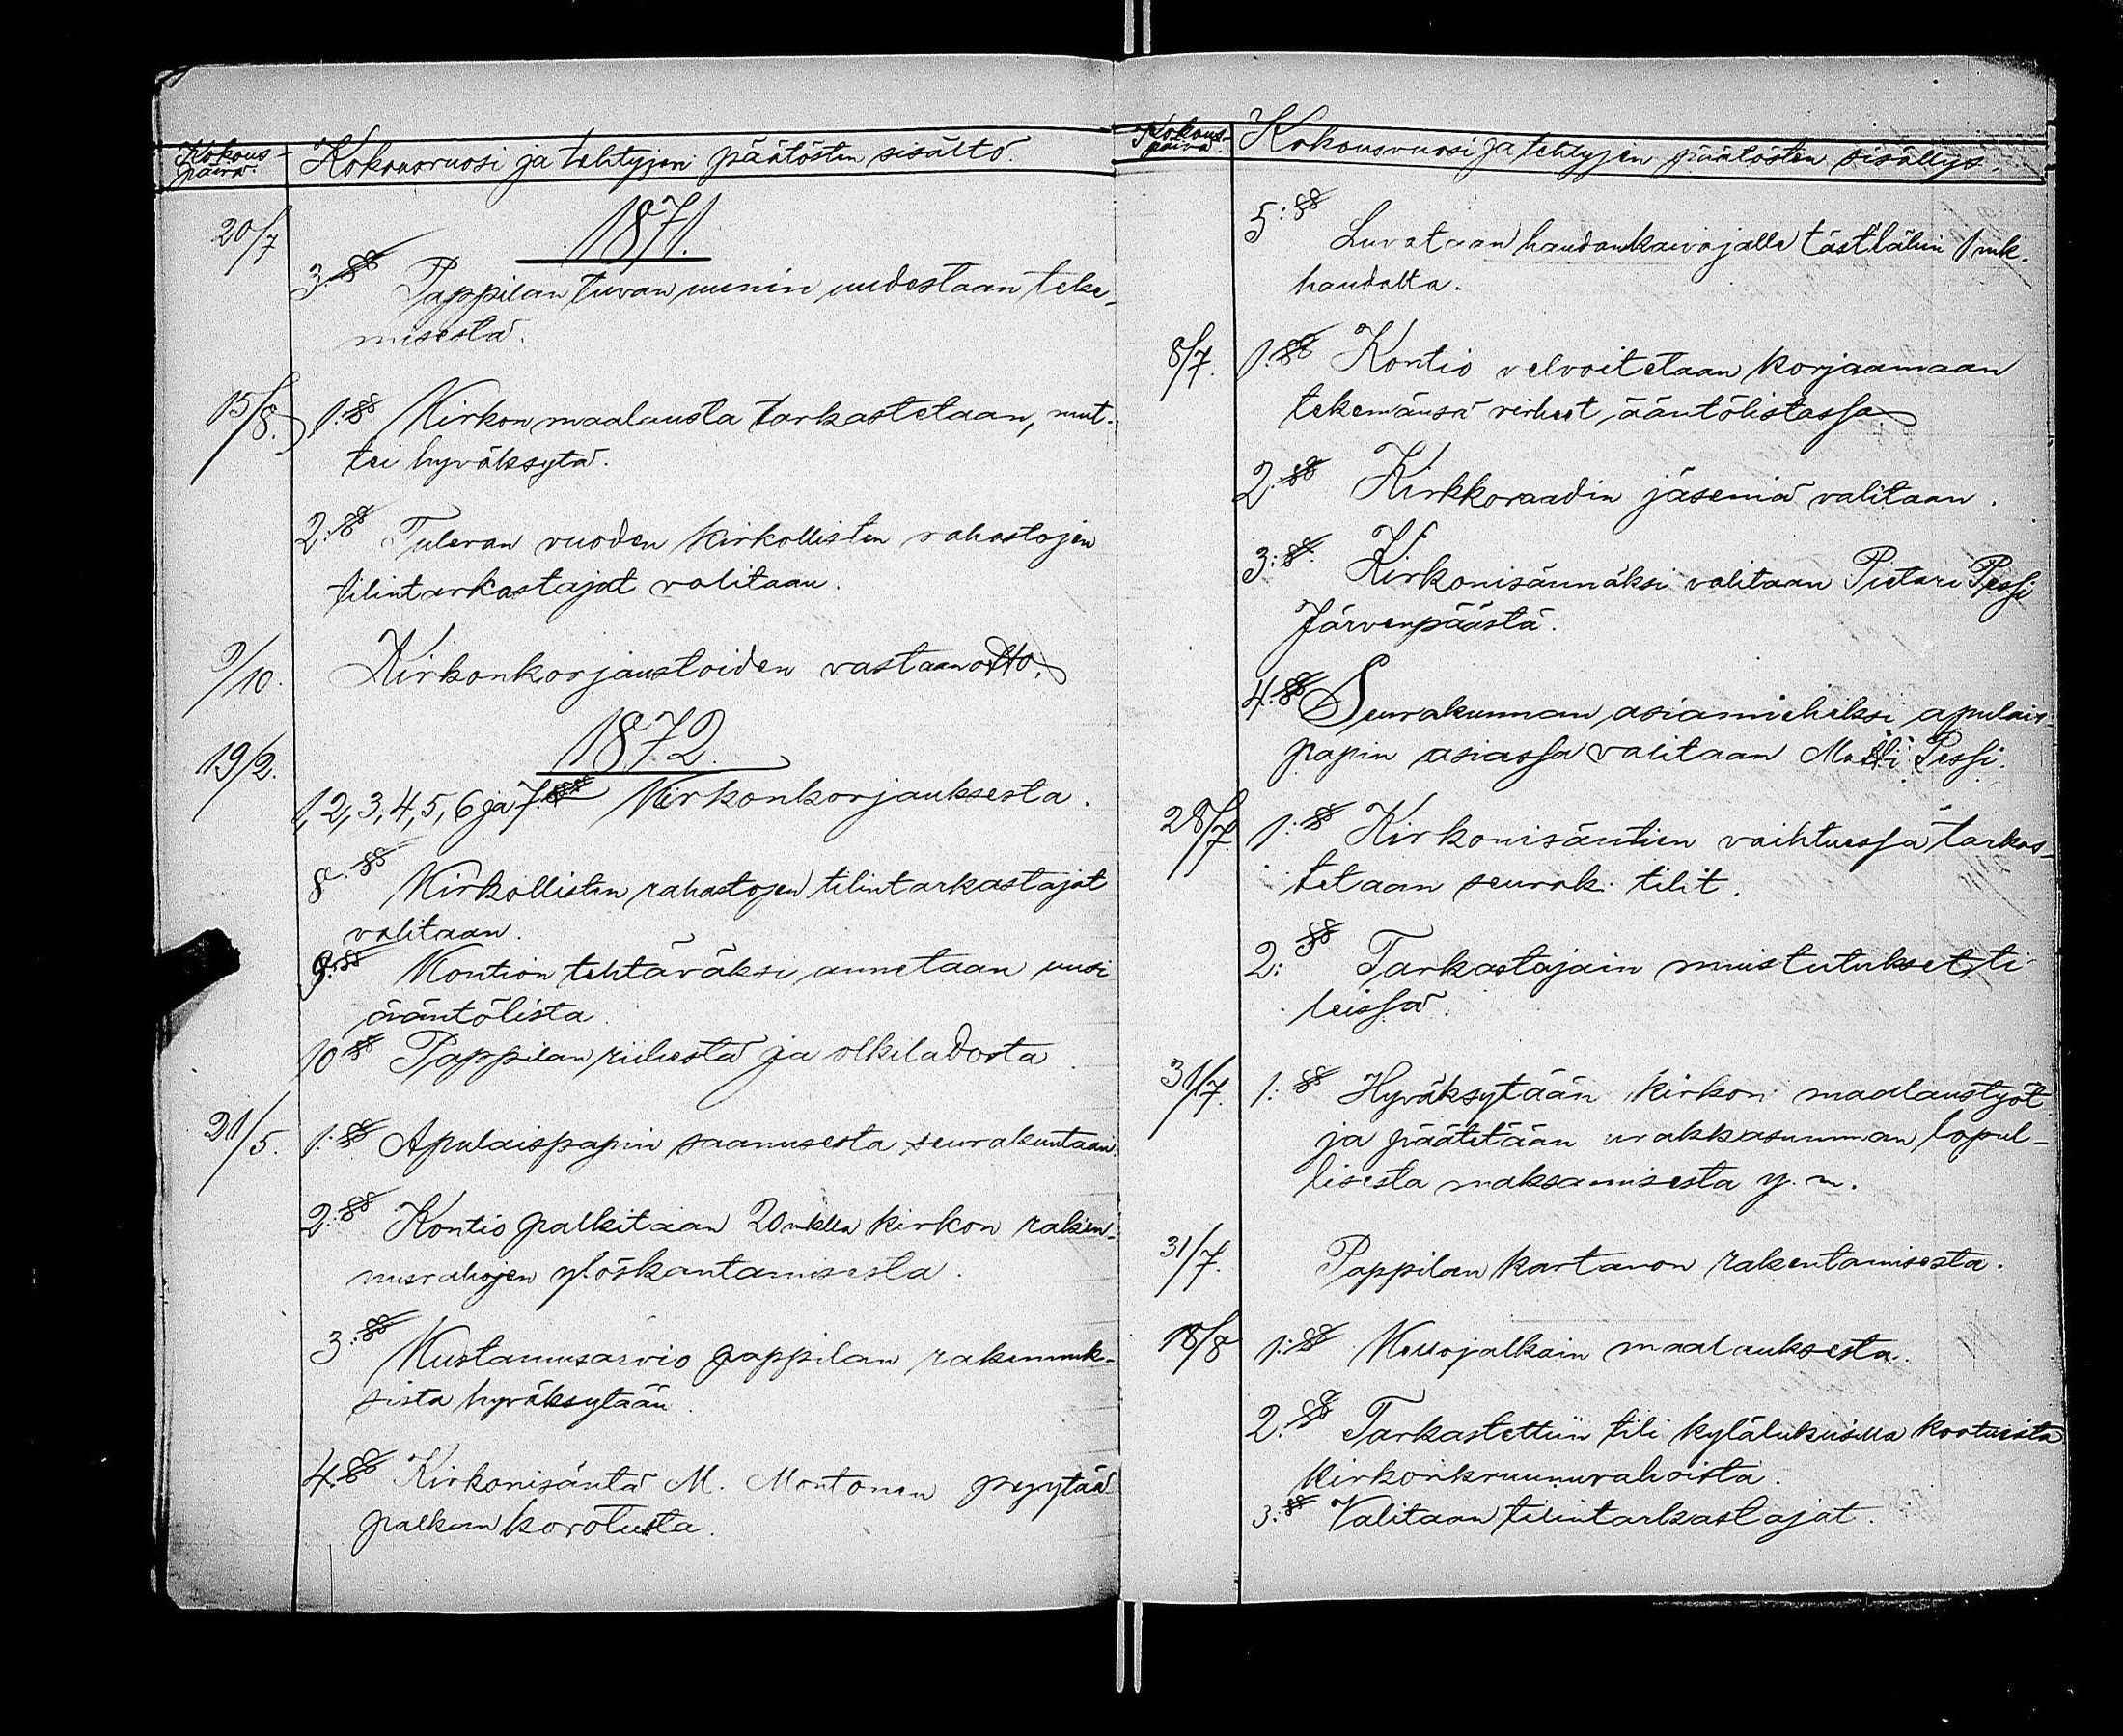 Kokous-
päivä.
Kokousvuosi ja tehtyjen päätösten sisältö.
1871.
20/7
3.§§ Pappilan tuvan uunin uudestaan teke-
misestä.
15/8. 1.§§ Kirkon maalausta tarkastetaan, mut-
tei hyväksytä.
2.§§ Tulevan vuoden kirkollisten rahastojen
tilintarkastajat valitaan.
9/10. Kirkonkorjaustoiden vastaanotto.
1872.
19/2.
1, 2, 3, 4, 5, 6 ja 7.§§ Kirkonkorjauksesta.
8.§§ Kirkollisten rahastojen tilintarkastajat
valitaan.
9.§§ Kontion tehtäväksi annetaan uusi
ääntölista.
10 §§ Pappilan riihestä ja olkiladosta
21/5. 1.§§ Apulaispapin saamisesta seurakuntaan.
2.§§ Kontio palkitaan 20 mklla kirkon raken-
nusrahojen ylöskantamisesta.
3.§§ Kustannusarvio pappilan rakennuk-
sista hyväksytään.
4.§§ Kirkonisäntä M. Montonen pyytää
palkan korotusta.
Kokous-
päivä
Kokousvuosi ja tehtyjen päätösten sisällys.
5.§§ Luvataan haudankaivajalle tästälähin 1 mk.
haudalta.
8/7. 1.§§ Kontio velvoitetaan korjaamaan
tekemänsä virheet ääntölistassa
2.§§ Kirkkoraadin jäseniä valitaan.
3.§§ Kirkonisännäksi valitaan Pietari Pessi
Järvenpäästä.
4.§§ Seurakunnan asiamieheksi apulais-
papin asiassa valitaan Matti Pessi.
28/7. 1.§§ Kirkonisäntien vaihtuessa tarkas-
tetaan seurak. tilit.
2:§§ Tarkastajain muistutukset ti
leissä.
31/7. 1.§§ Hyväksytään kirkon maalaustyöt
ja päätetään urakkasumman lopul-
lisesta maksamisesta y. m.
31/7. Pappilan kartanon rakentamisesta.
18/8 1.§§ maalauksesta.
2.§§ Tarkastettiin tili kylälukusilla kootuista
kirkonkruunurahoista.
3.§§ Valitaan tilintarkastajat.